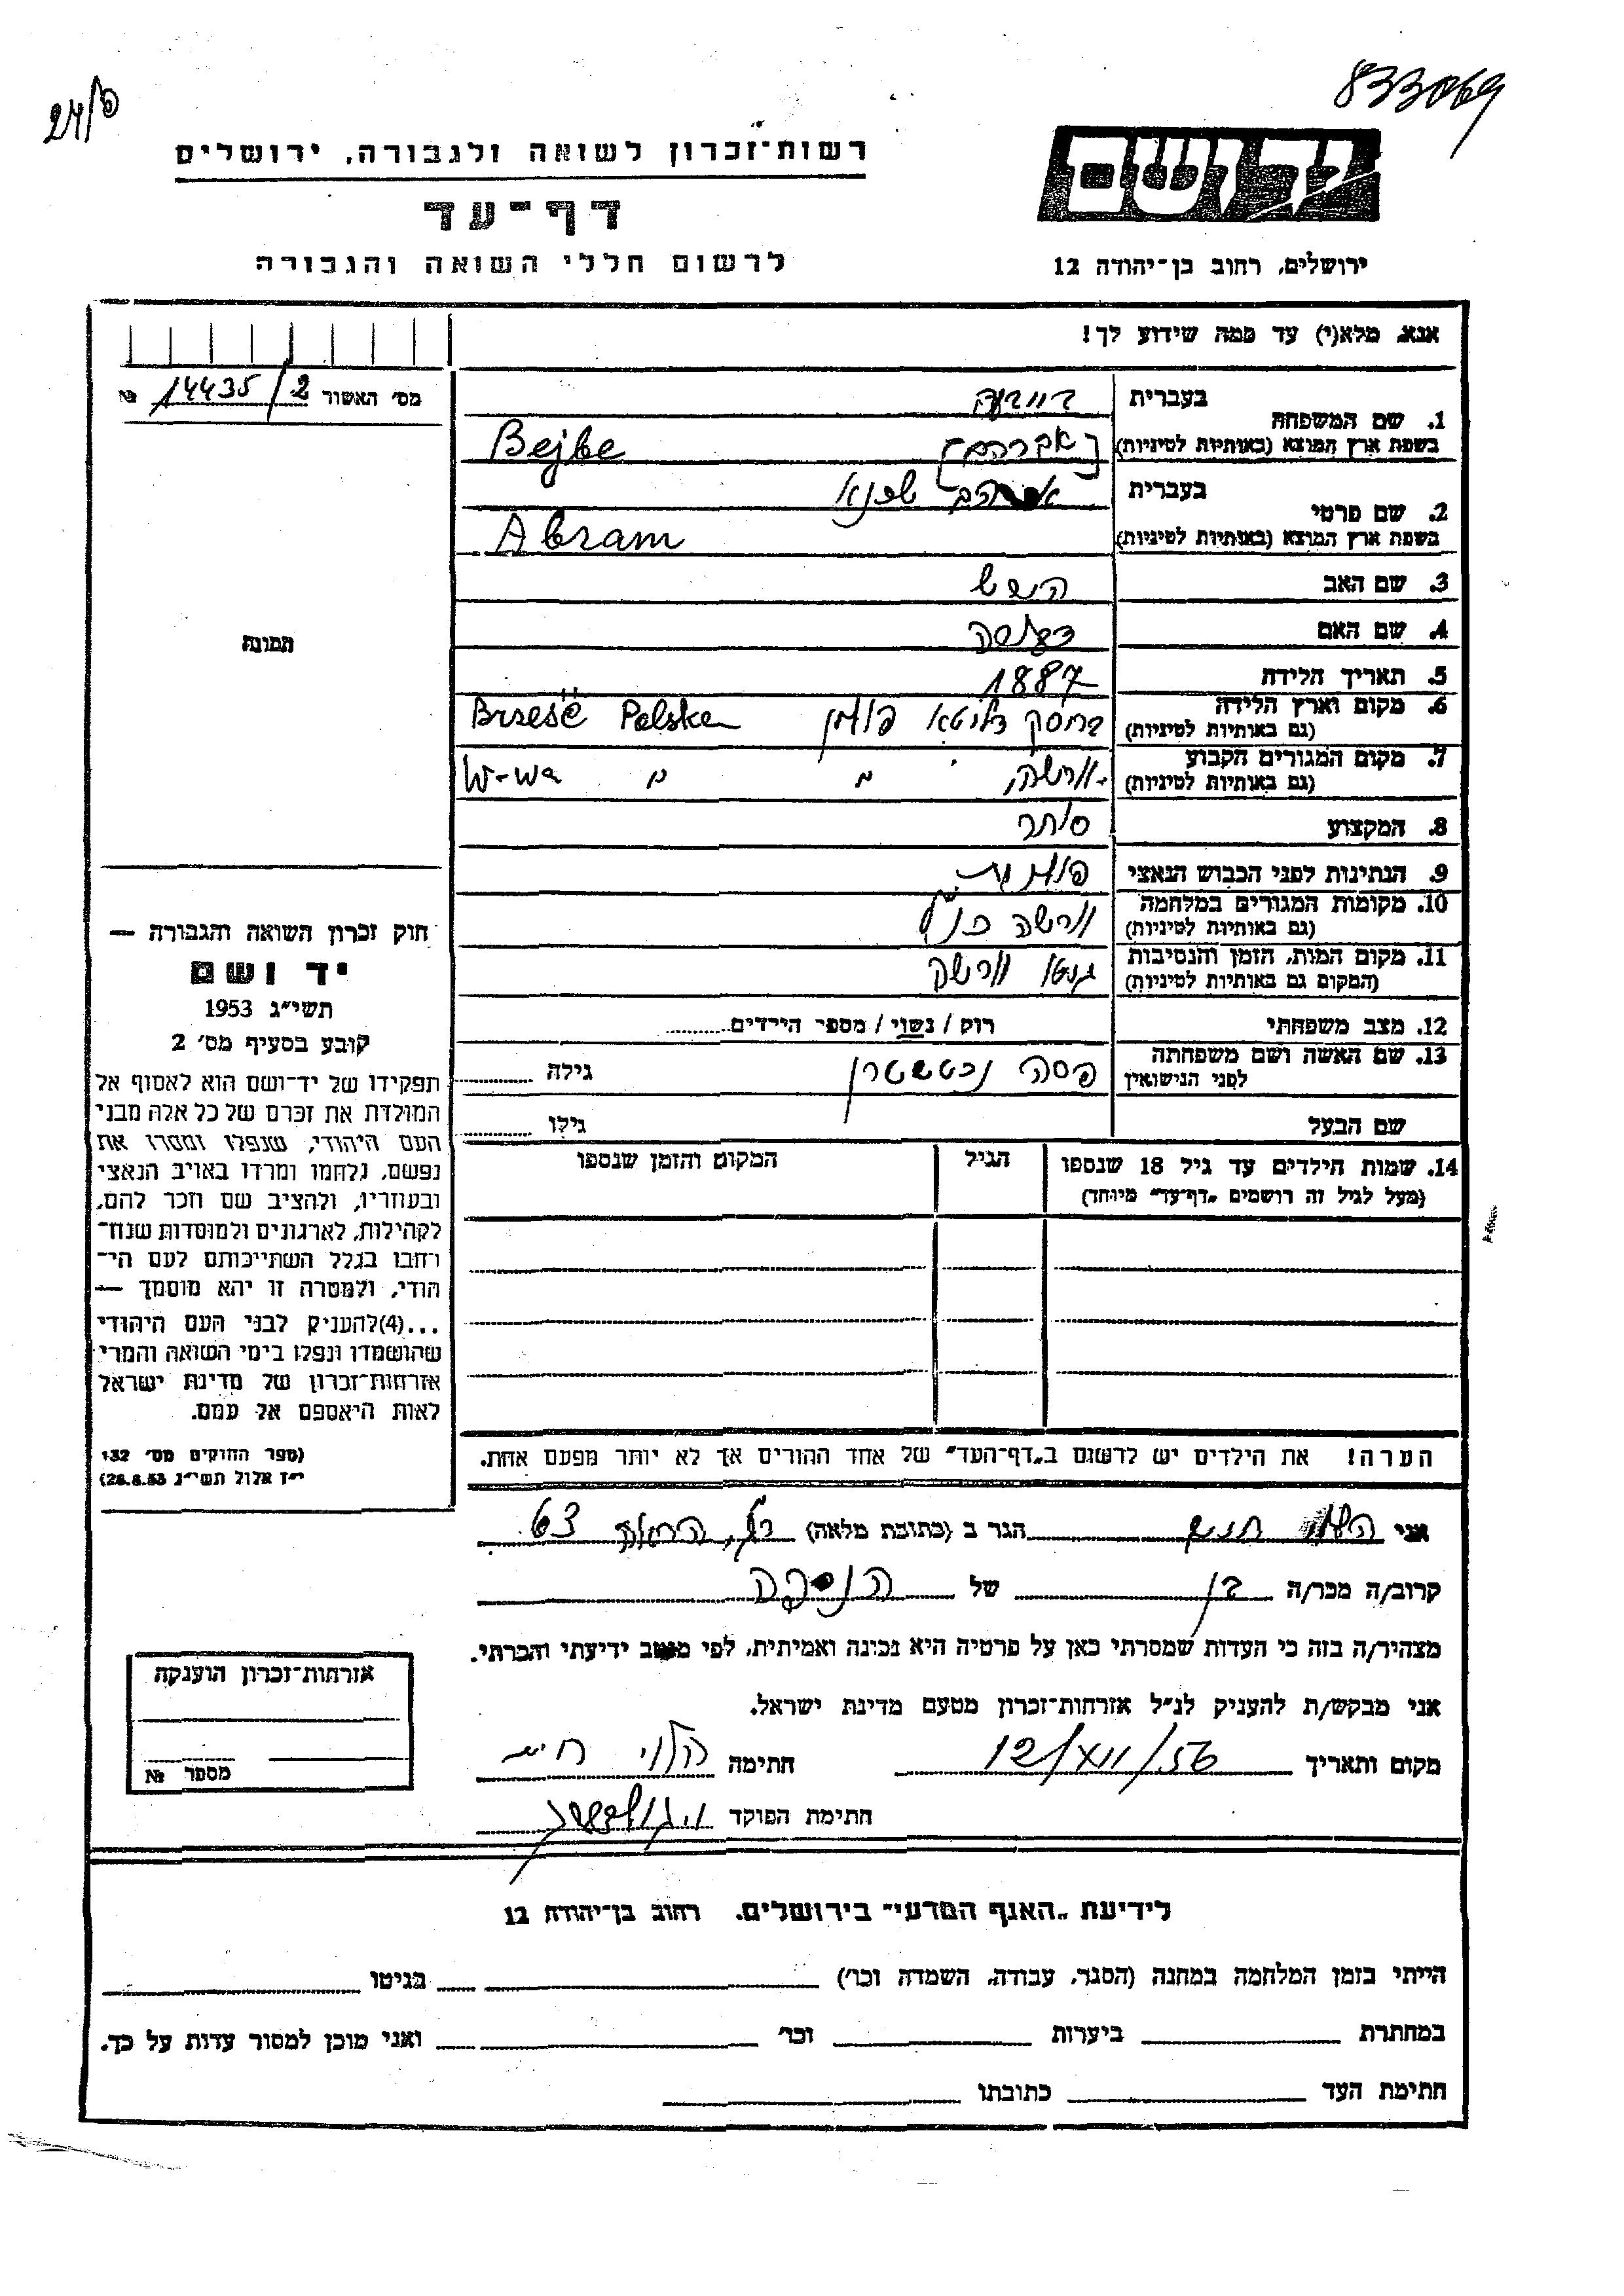 833069
רשות־זכרון לשואה ולגבורה, ירושלים
יד ושם
דף־עד
לרשום חללי השואה והגבורה
ירושלים, רחוב בן־יהודה 12
אנא, מלא(י) עד כמה שידוע לך!
מס׳ האשור 14435/2 №
1. שם המשפחה
בעברית
בשפת ארץ המוצא (באותיות לטיניות)
[אברהם] Bejbe
2. שם פרטי
בעברית
בשפת ארץ המוצא (באותיות לטיניות) Abram
3. שם האב
4. שם האם
5. תאריך הלידה 1887
6. מקום וארץ הלידה
(גם באותיות לטיניות)
בריסק דליטא פולין Brześć Polska
7. מקום המגורים הקבוע
(גם באותיות לטיניות)
ורשה, " " W-wa
8. המקצוע סוחר
9. הנתינות לפני הכבוש הנאצי פולנית
10. מקומות המגורים במלחמה
(גם באותיות לטיניות)
ורשה כנ"ל
11. מקום המות, הזמן והנסיבות
(המקום גם באותיות לטיניות)
גיטו ורשה
12. מצב משפחתי רוק / נשוי / מספר הילדים
13. שם האשה ושם משפחתה
לפני הנישואין
פסה גילה
שם הבעל גילו
14. שמות הילדים עד גיל 18 שנספו
(מעל לגיל זה רושמים „דף־עד״ מיוחד)
הגיל
המקום והזמן שנספו
הערה! את הילדים יש לרשום ב„דף־העד״ של אחד ההורים אך לא יותר מפעם אחת.
תמונה
חוק זכרון השואה והגבורה —
יד ושם
תשי״ג 1953
קובע בסעיף מס׳ 2
תפקידו של יד־ושם הוא לאסוף אל
המולדת את זכרם של כל אלה מבני
העם היהודי, שנפלו ומסרו את
נפשם, נלחמו ומרדו באויב הנאצי
ובעוזריו, ולהציב שם וזכר להם,
לקהילות, לארגונים ולמוסדות שנח־
רחבו בגלל השתייכותם לעם הי־
הודי, ולמטרה זו יהא מוסמך —
...(4)להעניק לבני העם היהודי
שהושמדו ונפלו בימי השואה והמרי
אזרחות־זכרון של מדינת ישראל
לאות היאספם אל עמם.
(ספר החוקים מס׳ 132
י״ז אלול תשי״ג 28.8.53)
אני הלוי חיים הגר ב (כתובת מלאה) 63
קרוב/ה מכר/ה בן של הנספה
מצהיר/ה בזה כי העדות שמסרתי כאן על פרטיה היא נכונה ואמיתית, לפי מיטב ידיעתי והכרתי.
אני מבקש/ת להעניק לנ״ל אזרחות־זכרון מטעם מדינת ישראל.
מקום ותאריך 12/XII/56 חתימה הלוי חיים
חתימת הפוקד
אזרחות־זכרון הוענקה
מספר №
לידיעת „האגף המדעי״ בירושלים, רחוב בן־יהודה 12
הייתי בזמן המלחמה במחנה (הסגר, עבודה, השמדה וכו׳) בגיטו
במחתרת ביערות וכו׳ ואני מוכן למסור עדות על כך.
חתימת העד כתובתו